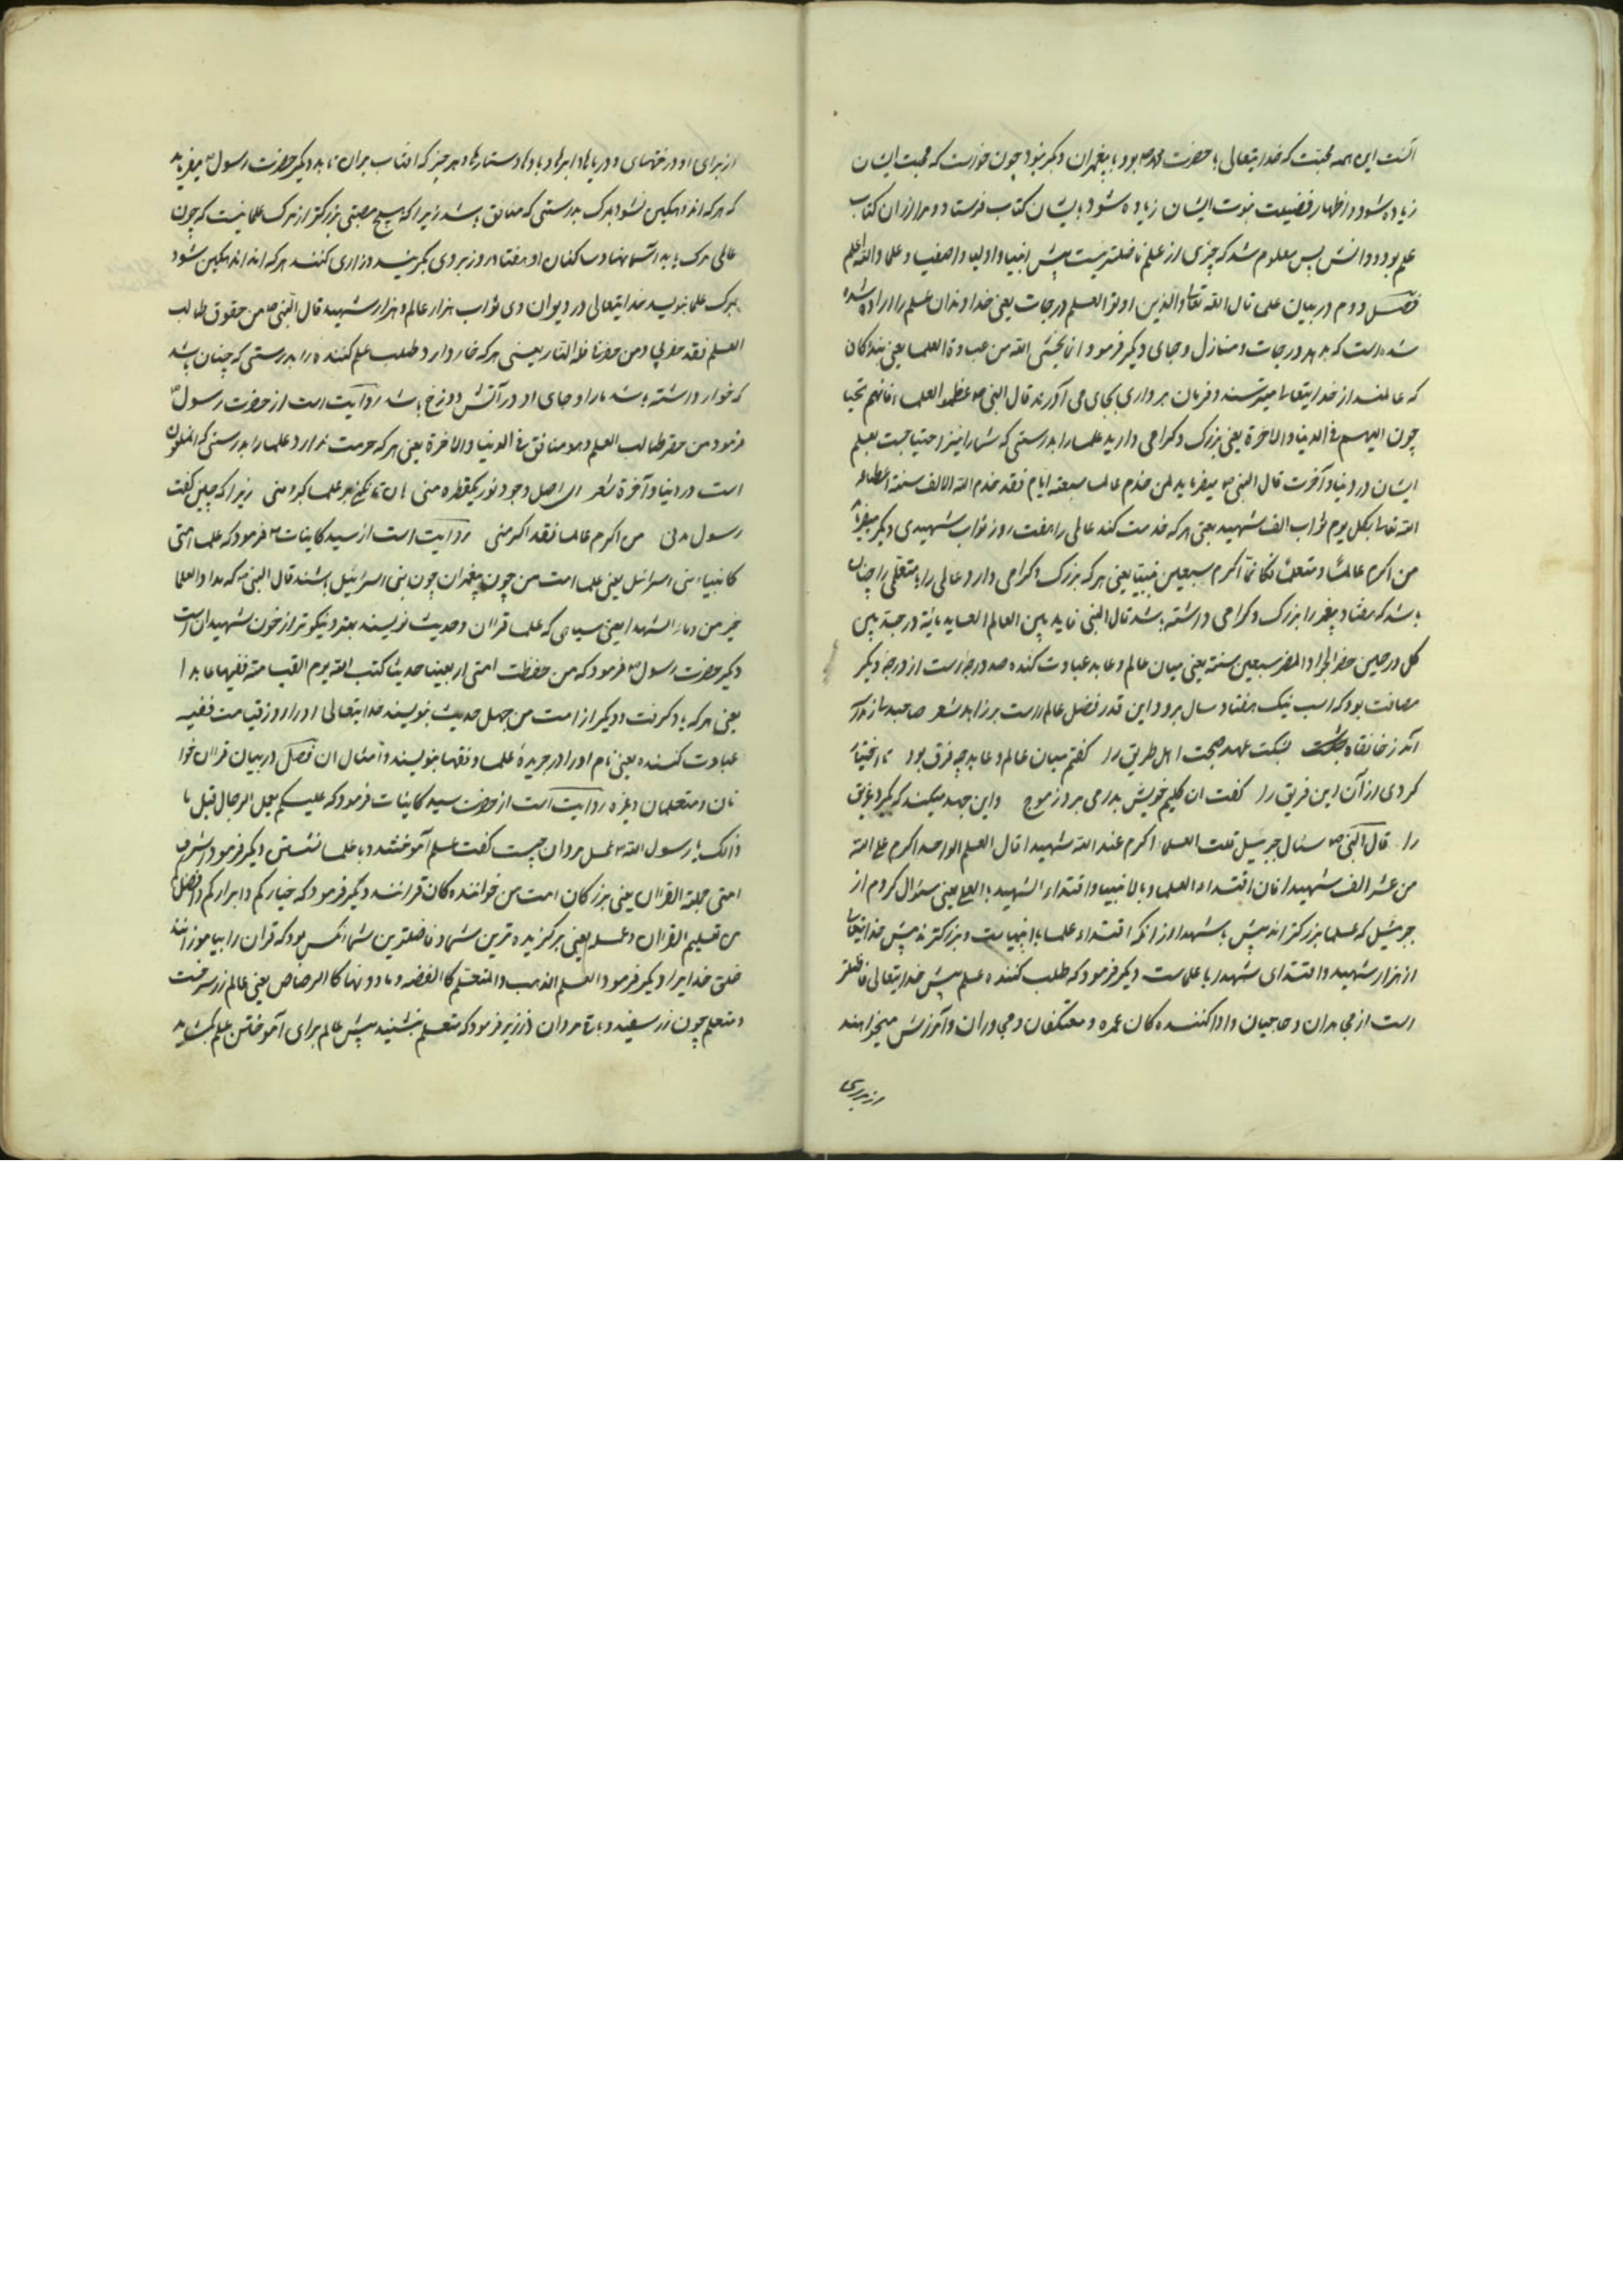 آنست این همه محبت که خدایتعالی با حضرت محمد ص بود با پیغمبران دیگر نبود چون خواست که محبت ایشان
زیاده شود و اظهار فضیلت نبوت ایشان زیاده شود بایشان کتاب فرستاد و مراد از آن کتاب
علم بود و دانش پس معلوم شد که چیزی از علم فاضلتر نیست پیش انبیا و اولیا و اصفیا و علما والله اعلم
فصل دوم در بیان علی قال الله تعالی والذین اوتوا العلم درجات یعنی خداوندان علم را داده شده
شده است که بدهد درجات و منازل و جای دیگر فرمود انما یخشی الله من عباده العلما یعنی بندکان
که عالمند از خدایتعالی میترسند و فرمان برداری بجای می آورند قال النبی ص عظموا العلماء فانهم تحتا
چون الیهم فی الدنیا والاخرة یعنی بزرک و کرامی دارید علما را بدرستی که شما را نیز احتیاجست بعلم
ایشان در دنیا و آخرت قال النبی ص میفرماید من خدم عالما سبعة ایام فقد خدم الله الالف سنة اعطاه
الله تعالی بکل یوم ثواب الف شهید یعنی هر که خدمت کند عالمی را هفت روز ثواب شهیدی دیگر میفرماید
من اکرم عالما و متعلما فکانما اکرم سبعین نبیا یعنی هر که بزرک و کرامی دارد عالمی را یا متعلمی را چنان
باشد که هفتاد پیغمبر را بزرک و کرامی داشته باشد قال النبی فایده بین العالم العابد مائة درجة بین
کل درجتین حضر الجواد المضمر سبعین سنة یعنی میان عالم و عابد عبادت کننده صد درجه است از درجه دیگر
مسافت بود که اسب نیک هفتاد سال برود این قدر فضل عالم است بر زاهد شعر صاحبدلی از مدرسه
آمد ز خانقاه بشکست عهد صحبت اهل طریق را کفتم میان عالم و عابد چه فرق بود تا اختیار
کردی از آن این فریق را کفت آن کلیم خویش بدر می برد ز موج واین جهد میکند که بکیرد غریق
را قال النبی ص سئال جبرئیل قلت العلماء اکرم عند الله شهیدا قال العلم الواحد اکرم علی الله
من عشر الف شهیدا فان اقتداء العلما و بالانبیا واقتداء الشهید بالعلم یعنی سئوال کردم از
جبرئیل که علما بزرکتر اند پیش یا شهدا از آنکه اقتداء علما بانبیا ست و بزرکترند پیش خدایتعالی
از هزار شهید و اقتدای شهدا با علماست دیگر فرمود که طلب کننده علم پیش خدایتعالی فاضلتر
است از مجاهدان و حاجیان و ادا کننده کان عمره و معتکفان و مجاوران و آمرزش میخواهند
از برای
از برای او درختهای و دریاها و ابرها و بادها و ستارها و هر چیز که افتاب بران تابد دیگر حضرت رسول ص میفرماید
که هر که اندوهکین نشود بمرک بدرستی که منافق باشد زیرا که هیچ مصیبتی بزرکتر از مرک علما نیست که چون
عالمی مرک یابد آسمانها و ساکنان او هفتاد روز بر وی بگریند و زاری کنند هر که اندوهکین شود
بمرک علما بنویسد خدایتعالی در دیوان وی ثواب هزار عالم و هزار شهید قال النبی ص من حقوق طالب
العلم فقد حقرنی ومن حقرنا فله النار یعنی هر که خوار دارد طلب علم کننده را بدرستی که چنان باشد
که خوار داشته باشد ما را و جای او در آتش دوزخ باشد روایت است از حضرت رسول ص
فرمود من حقر طالب العلم وهو منافق فی الدنیا والاخرة یعنی هر که حرمت ندارد علما را بدرستی که ملعون
است در دنیا و آخرة شعر ای اصل وجود تو ز یکقطره منی هان تا نکنی بر علما کبر و منی زیرا که چنین کفت
رسول مدنی من اکرم عالما فقد اکرمنی روایت است از سید کاینات ص فرمود که علماء امتی
کانبیاء بنی اسرائیل یعنی علماء امت من چون پیغمبران چون بنی اسرائیل باشند قال النبی ص که مداد العلما
خیر من دماء الشهدا یعنی سیاهی که علما قران و حدیث نویسند بهتر و نیکوتر از خون شهیدانست
دیگر حضرت رسول ص فرمود که من حفظت امتی اربعینا حدیثا کتب الله یوم القیامة فقیها عابدا
یعنی هر که یاد کرفت و دیگر از امت من چهل حدیث بنویسد خدایتعالی او را روز قیامت فقیه
عبادت کننده یعنی نام او را در جریده علما و فقها بنویسند و امثال ان فصل در بیان قران خوا
نان و متعلمان و غیره روایت است از حضرت سید کاینات فرمود که علیکم بعمل الرجال قیل ما
ذالک یا رسول الله ص عمل مردان چیست کفت علم آموختن و با علما نشستن دیگر فرمود اشراف
امتی حملة القران یعنی بزرکان امت من خواننده کان قرانند و دیگر فرمود که خیارکم و ابرارکم و افضلکم
من تعلیم القران و علمه یعنی برکزیده ترین شما و فاضلترین شما آنکس بود که قران را بیاموزاند
خلق خدایرا و دیگر فرمود العلم الذهب والمتعلم کالفضه و ما دونها کالرصاص یعنی عالم زر سرخست
و متعلم چون زر سفید و باقی مردان ارزیز فرمود که متعلم بنشیند پیش عالم برای آموختن علم بکشاید